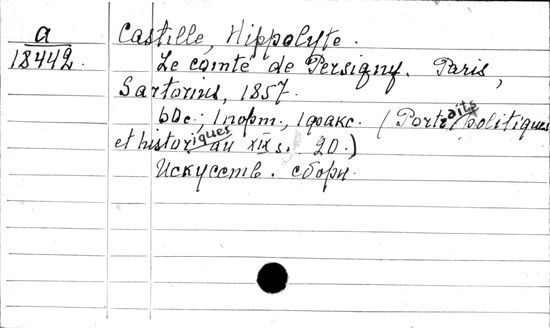 a
18442.
Castille, Hippolyte.
Le comte de Persigny. Paris,
Sartorius, 1857.
60с.; 1 порт., 1 факс. (Portraits politiques
et historiques au XIX s. 20.)
Искусств. сборн.